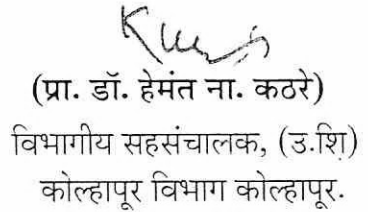 (प्रा. डॉ. हेमंत ना. कठरे)
विभागीय सहसंचालक, (उ.शि)
कोल्हापूर विभाग कोल्हापूर.